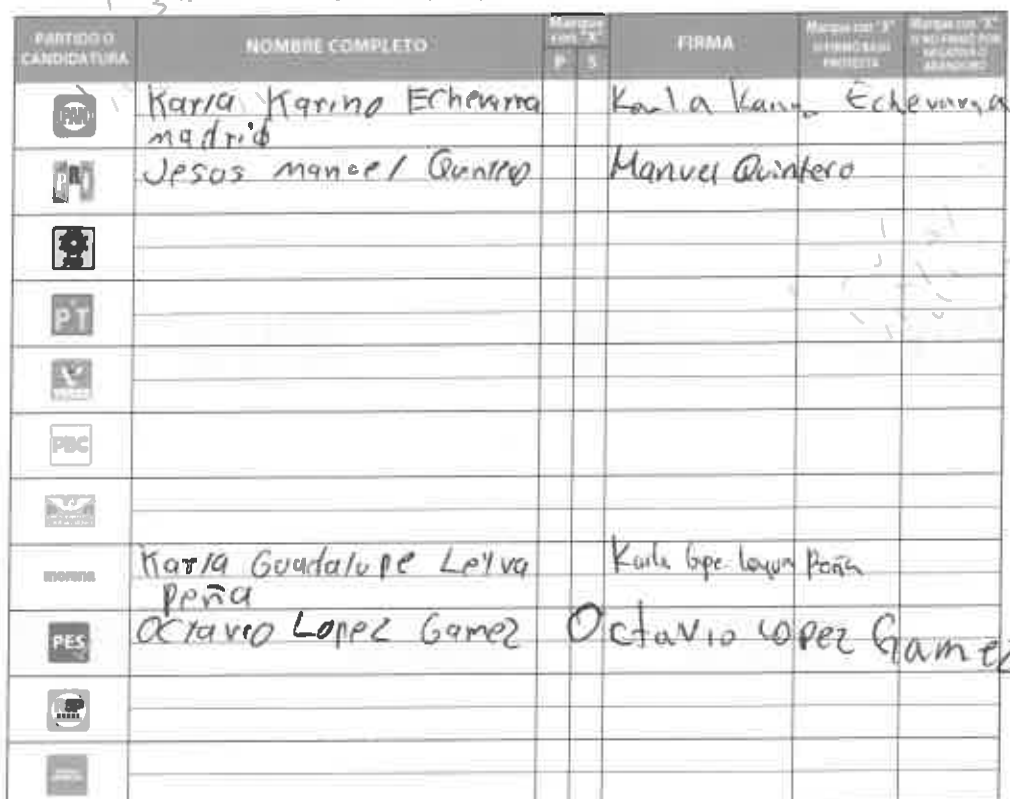 PARTIDO O CANDIDATURA NOMBRE COMPLETO Marque con "X" P S FIRMA Marque con "X" SI FIRMÓ BAJO PROTESTA Marque con "X" SI NO FIRMÓ POR NEGATIVA O ABANDONO
PAN Karla Karino Echevarria Karla Echevarria
madrid
PRI Jesus manuel Quintero Manuel Quintero
PT
VERDE
PBC
morena Karla Guadalupe Leyva Karla Gpe Peña
Peña
PES Octavio Lopez Gamez Octavio Lopez Gamez
RSP